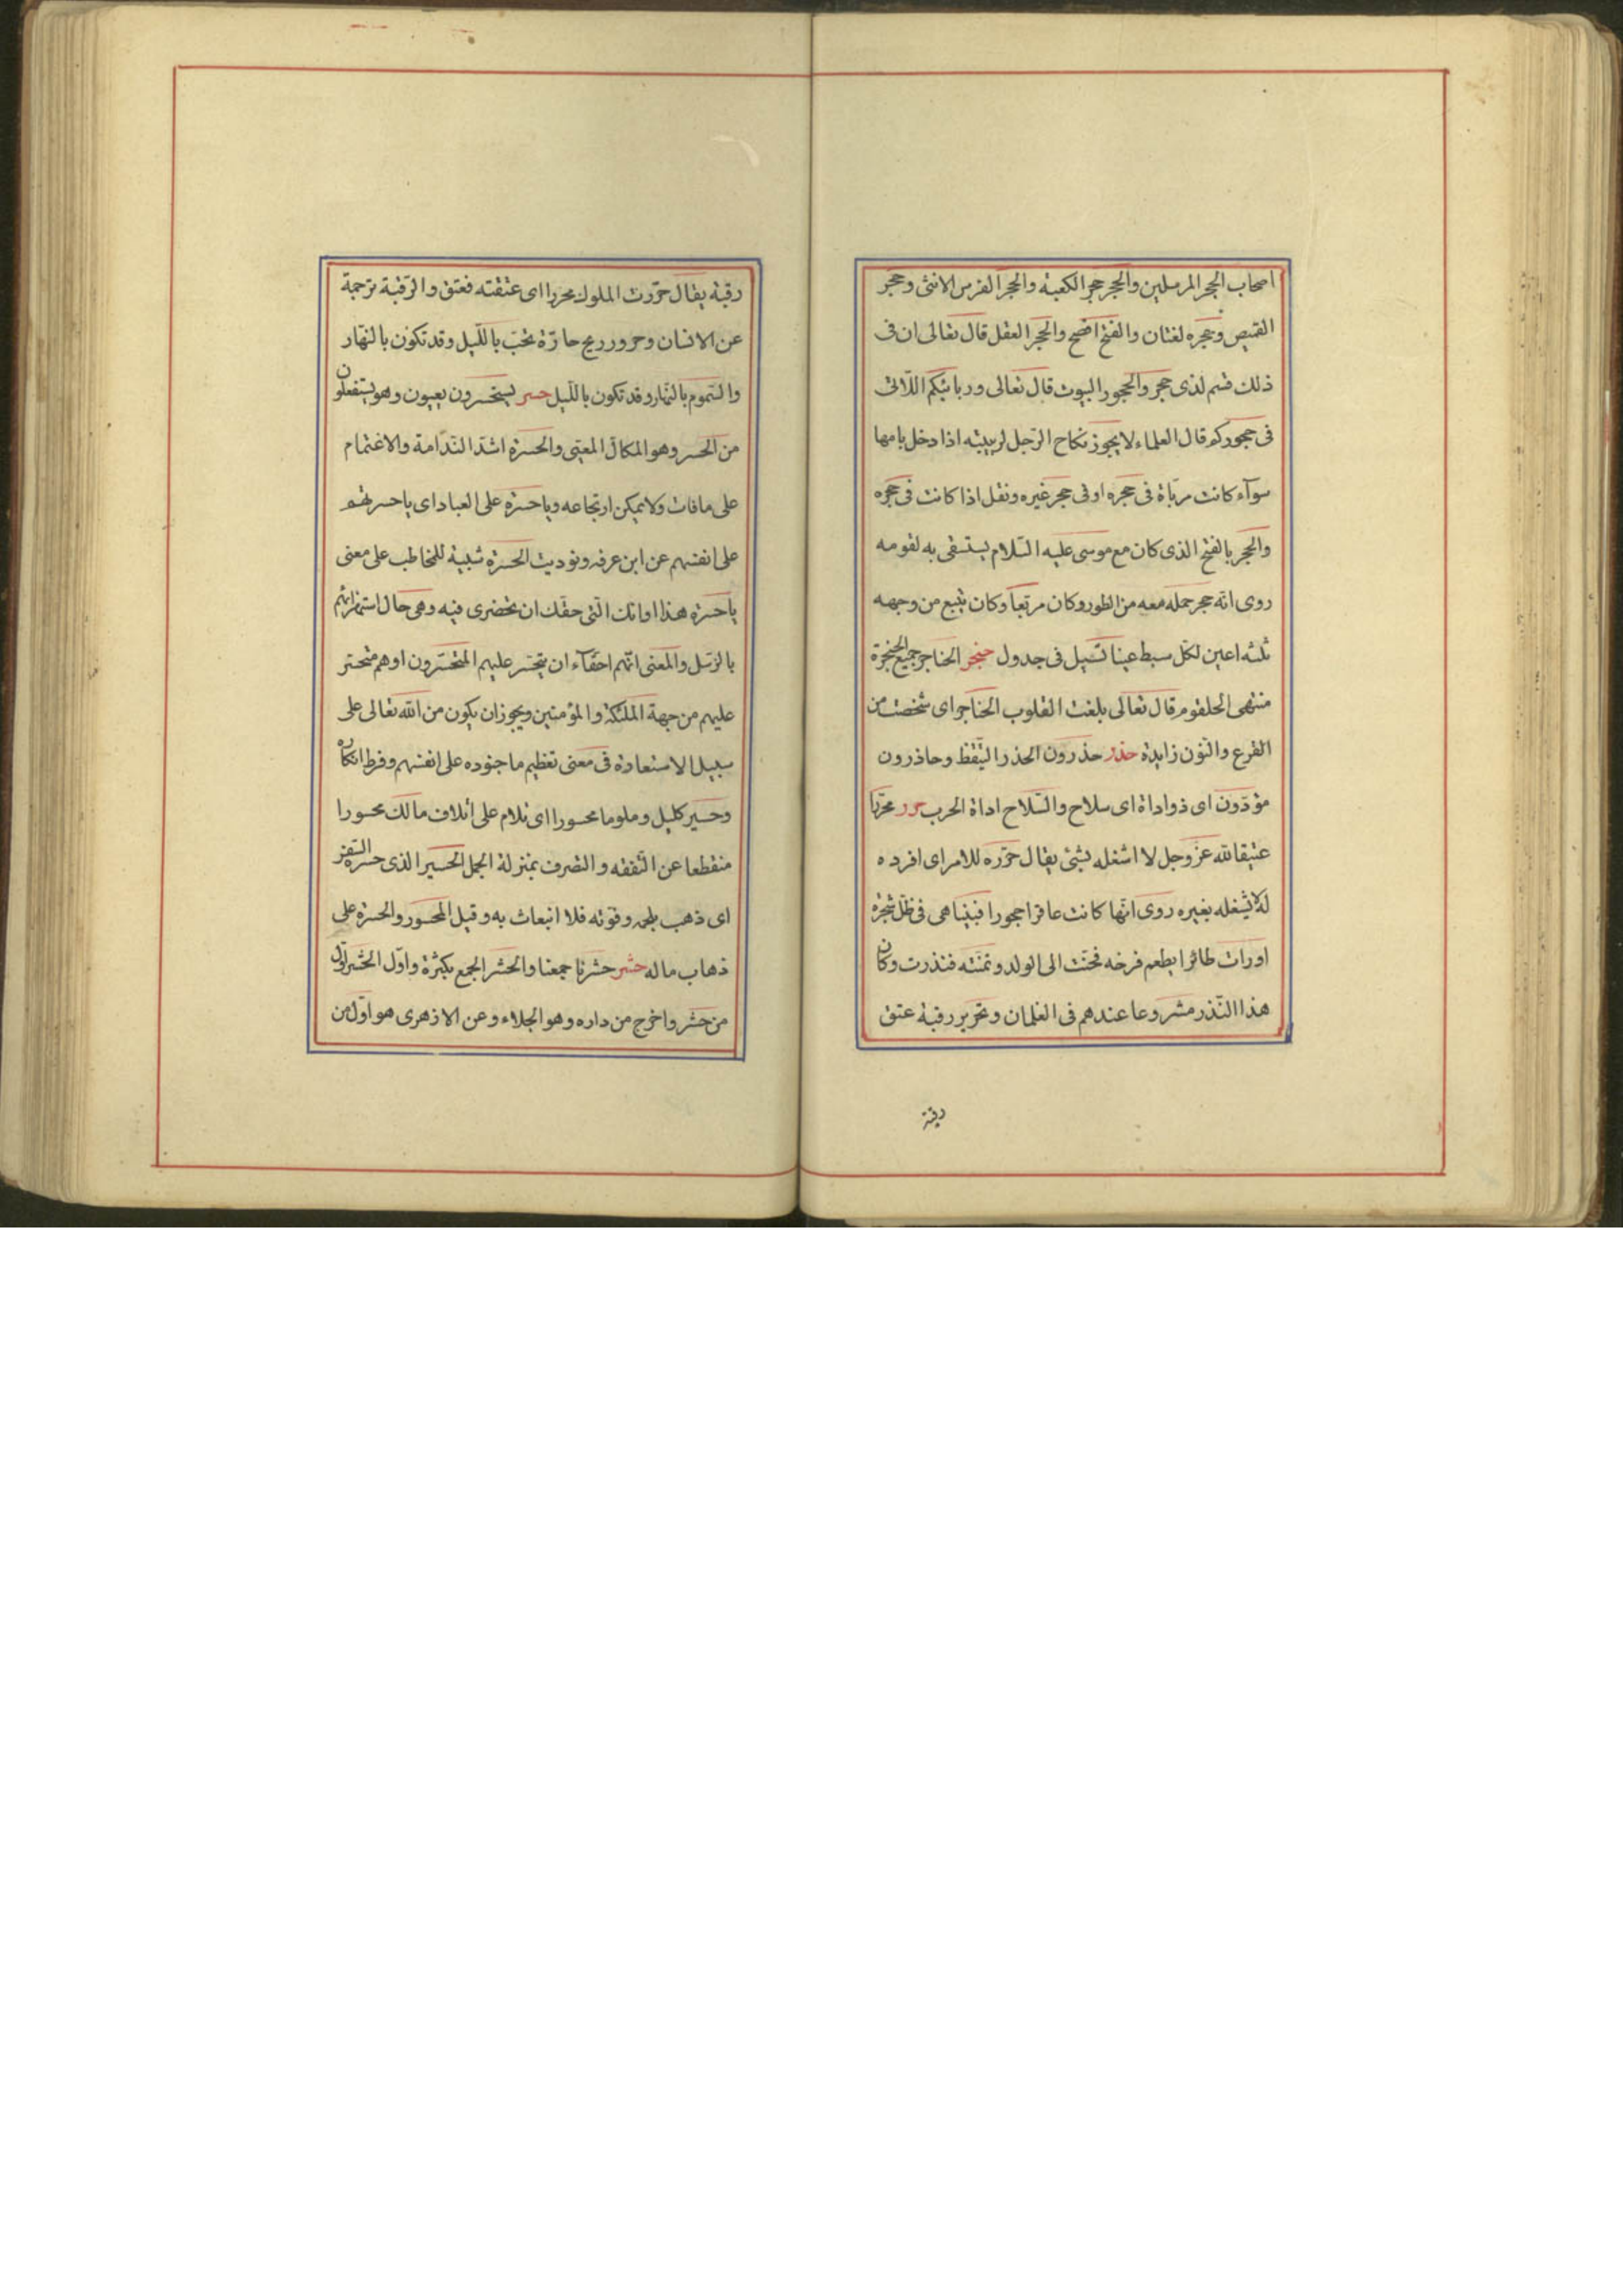 اصحاب الحجر المرسلين والحجر حجر الكعبة والحجر الفرس الانثى وحجر
القميص وحجره لغتان والفتح افصح والحجر العقل قال تعالى ان فى
ذلك قسم لذى حجر والحجور البيوت قال تعالى وربائبكم اللاتى
فى حجوركم قال العلماء لا يجوز نكاح الرّجل لربيبته اذا دخل بامها
سوآء كانت مربّاة فى حجره او فى حجر غيره ونقل اذا كانت فى حجره
والحجر بالفتح الذى كان مع موسى عليه السّلام يستسقى به لقومه
روى انّه حجر حمله معه من الطور وكان مربّعا وكان ينبع من وجهه
ثلثه اعين لكلّ سبط عينا تسيل فى جدول حنجر الحناجر جميع الحنجرة
منتهى الحلقوم قال تعالى بلغت القلوب الحناجر اى شخصت من
الفزع والنّون زايدة حذر حذرون الحذر التّيقّظ وحاذرون
مؤدّون اى ذو اداة اى سلاح والسّلاح اداة الحرب حرر محرّرا
عتيقا لله عزّ وجل لا اشغله بشئ يقال حرّره للامر اى افرده
له لا يشغله بغيره روى انّها كانت عاقرا عجورا فبيناهى فى ظلّ شجرة
اورات طائرا يطعم فرخه فحنّت الى الولد وتمنّته فنذرت وكان
هذا النّذر مشروعا عندهم فى الغلمان وتحرير رقبة عتق
رقبة
رقبة يقال حرّرت المملوك محررا اى عتقته فعتق والرّقبة ترجمة
عن الانسان وحرور ريح حارّة تخبّ باللّيل وقد تكون بالنّهار
والسّموم بالنّهار وقد تكون باللّيل حسر يستحسرون يعيون وهو يستفعلون
من الحسر وهو المكالّ المعيى والحسرة اشدّ النّدامة والاغتمام
على ما فات ولا يمكن ارتجاعه ويا حسرة على العباد اى يا حسرتهم
على انفسهم عن ابن عرفه ونوديت الحسرة تنبيه للمخاطب على معنى
يا حسرة هذا اوانك الّتى حقّك ان تحضرى فيه وهى حال استهزائهم
بالرّسل والمعنى انّهم احقّآء ان يتحسّر عليهم المتحسّرون او هم متحسّر
عليهم من جهة الملئكة والمؤمنين ويجوز ان يكون من الله تعالى على
سبيل الاستعارة فى معنى تعظيم ما جنوده على انفسهم وفرط انكاره
وحسير كليل وملوما محسورا اى تلام على اتلاف مالك محسورا
منقطعا عن النّفقه والتصرف بمنزلة الجمل الحسير الذى حسره السّفر
اى ذهب بلحمه وقوّته فلا انبعاث به وقيل المحسور والحسرة على
ذهاب ماله حشر حشرنا جمعنا والحشر الجمع بكثرة واوّل الحشر اوّل
من حشر واخرج من داره وهو الجلاء وعن الازهرى هو اوّل من